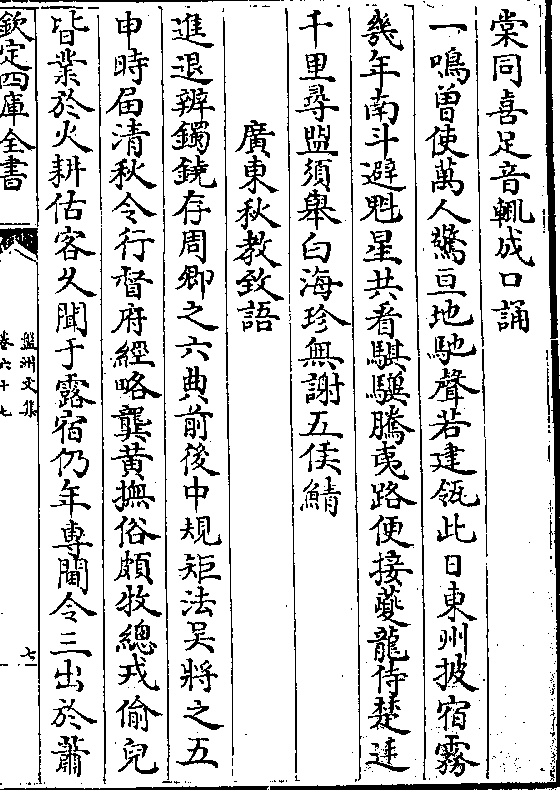 棠同喜足音輒成口誦
一鳴曽使萬人驚亘地馳聲若建瓴此日東州披宿霧
幾年南斗避魁星共看騏驥騰夷路便接夔龍侍楚逵
千里尋盟須舉白海珍無謝五侯鯖
廣東秋教致語
進退辨鐲鐃存周卿之六典前後中規矩法吳將之五
申時届清秋令行督府經略龔黄撫俗頗牧總戎偷兒
皆業於火耕估客乆聞于露宿仍年專閫令三出於蕭
欽定四庫全書
盤洲文集
卷六十七
七